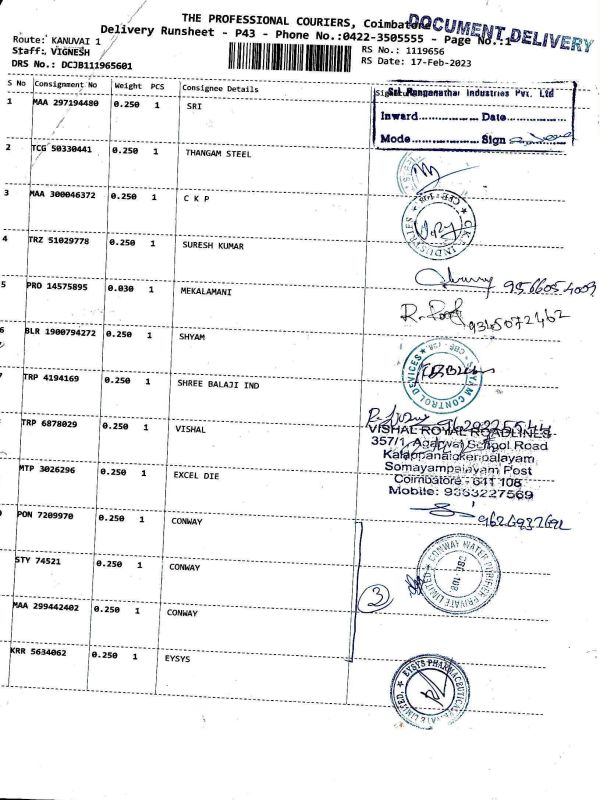 THE PROFESSIONAL COURIERS, Coimbatore
DOCUMENT DELIVERY
Delivery Runsheet - P43 - Phone No.:0422-3505555 - Page No.:1
Route: KANUVAI 1
Staff: VIGNESH
DRS No.: DCJB111965601
RS No.: 1119656
RS Date: 17-Feb-2023
S No Consignment No Weight PCS Consignee Details
Sri Ranganathar Industries Pvt. Ltd
Inward.................. Date..................
Mode.................. Sign
1 MAA 297194480 0.250 1 SRI
2 TCG 50330441 0.250 1 THANGAM STEEL
3 MAA 300046372 0.250 1 C K P
C.K.P. INDUSTRIES
4 TRZ 51029778 0.250 1 SURESH KUMAR
9566054009
5 PRO 14575895 0.030 1 MEKALAMANI
9345072462
6 BLR 1900794272 0.250 1 SHYAM
SHYAM CONTROL DEVICES
TRP 4194169 0.250 1 SHREE BALAJI IND
TRP 6878029 0.250 1 VISHAL
VISHAL ROYAL ROADLINES
357/1, Agarwal School Road
Kalappanaickenpalayam
Somayampalayam Post
Coimbatore - 641 108
Mobile: 9363227569
MTP 3026296 0.250 1 EXCEL DIE
PON 7209970 0.250 1 CONWAY
STY 74521 0.250 1 CONWAY
CONWAY WATER PURIFIER PRIVATE LIMITED
CBE-108
3
MAA 299442402 0.250 1 CONWAY
KRR 5634062 0.250 1 EYSYS
EYSYS PHARMACEUTICAL PRIVATE LIMITED